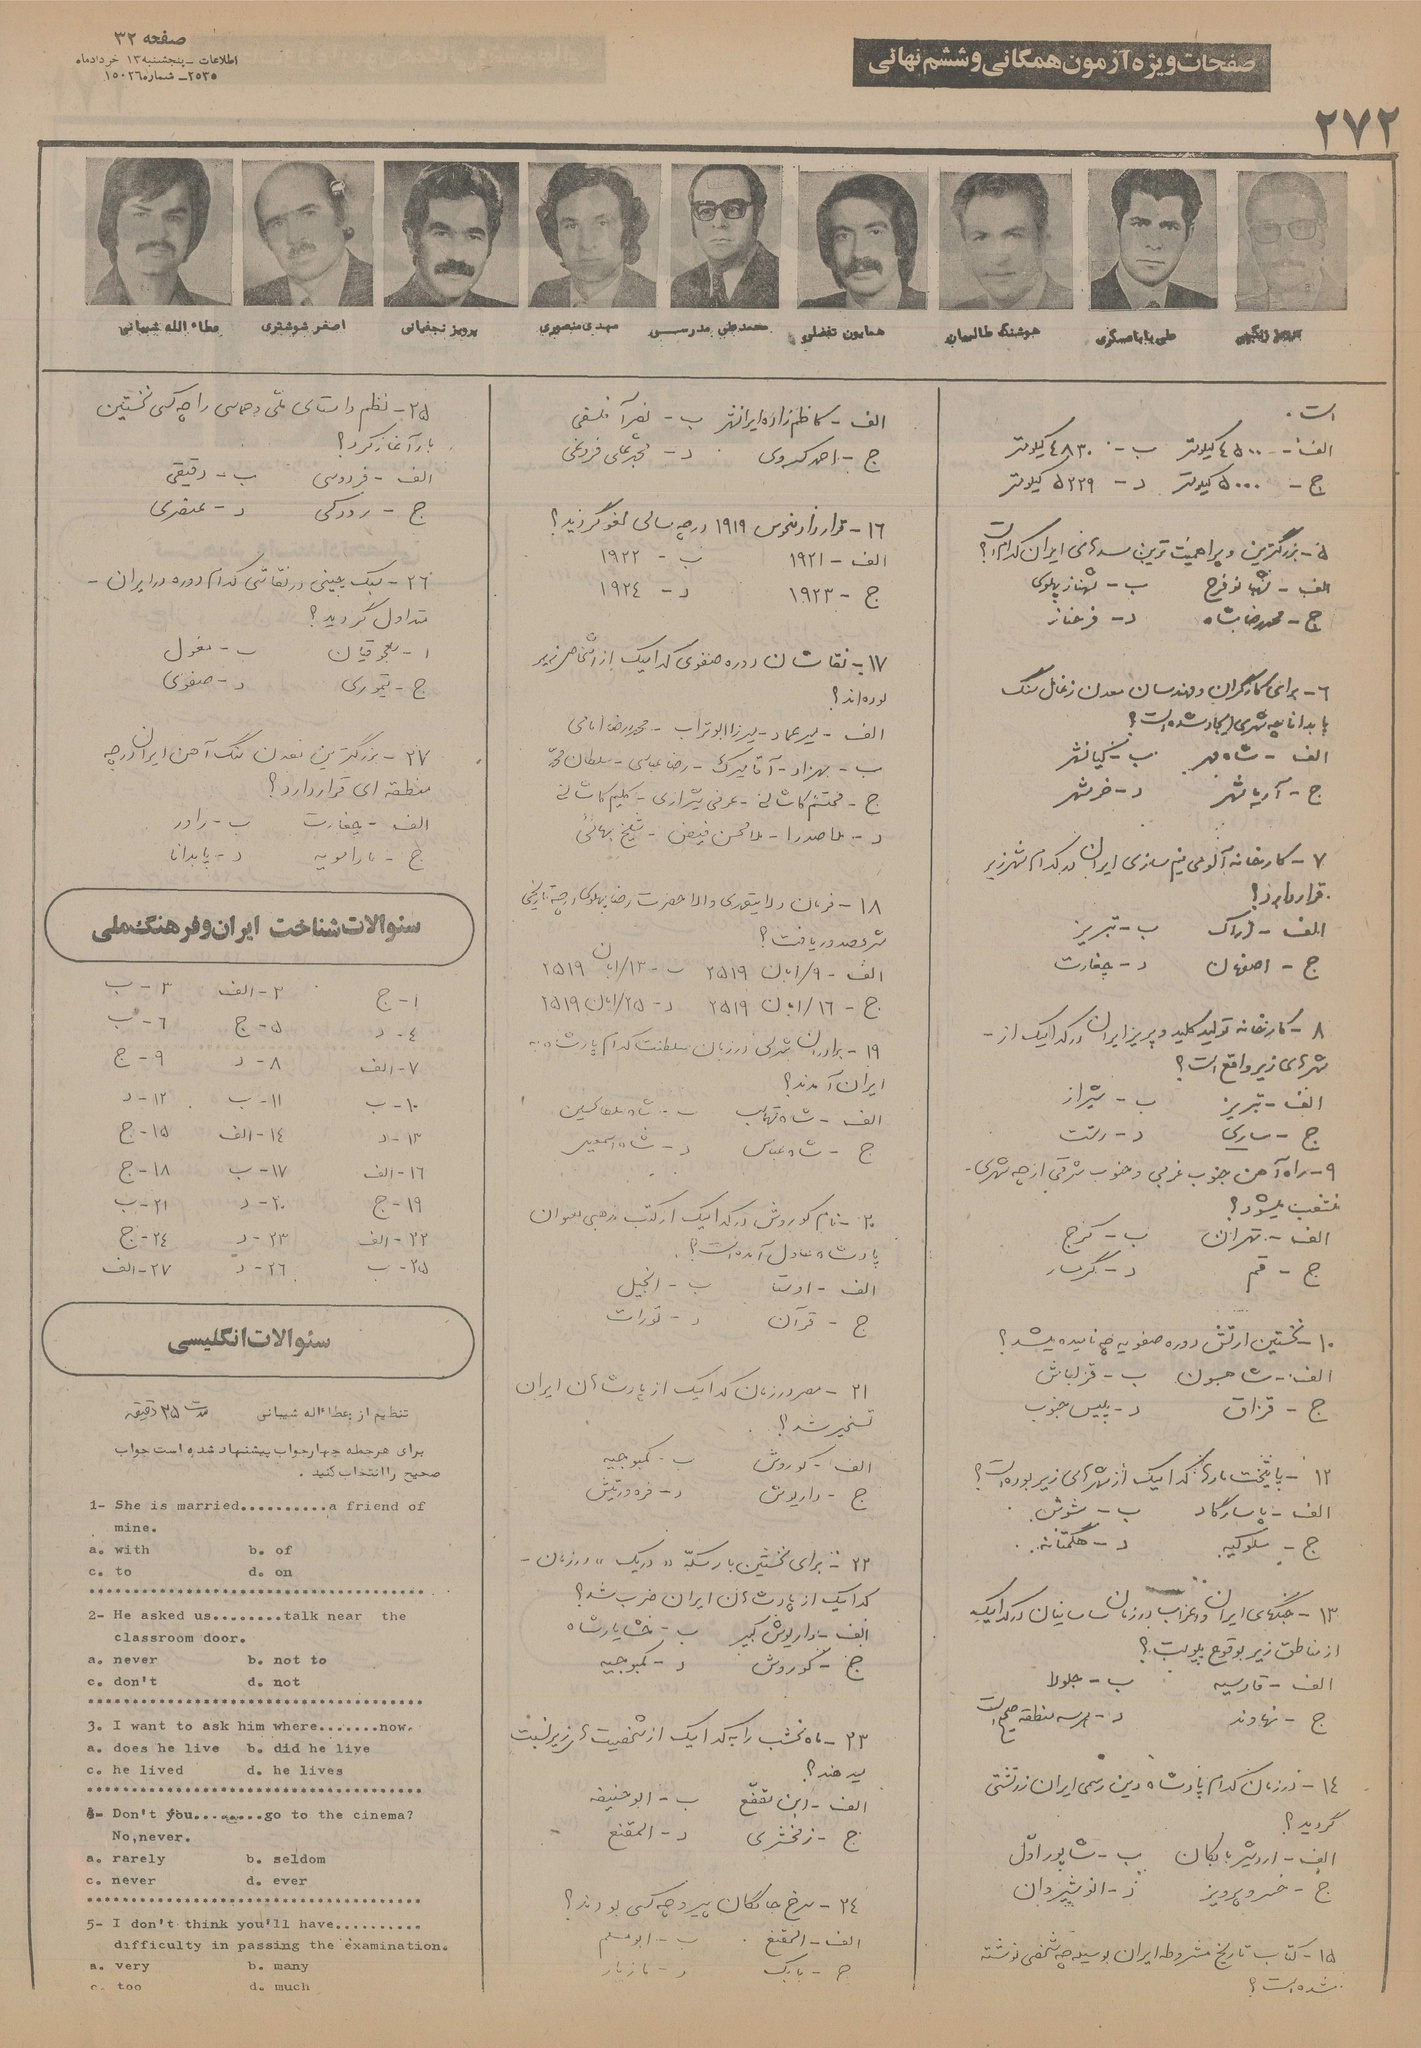 صفحه ۳۲
اطلاعات - پنجشنبه ۱۳ خردادماه
۲۵۳۵ - شماره ۱۵۰۲۶
صفحات ویژه آزمون همگانی و ششم نهائی
۲۷۲
علی باباعسگری
هوشنگ طالبیان
همایون تفضلی
محمدعلی مدرسی
مهدی منصوری
پرویز نجفیانی
اصغر شوشتری
عطاءالله شیبانی
است.
الف - ۴۵۰۰ کیلومتر ب - ۴۸۳۰ کیلومتر
ج - ۵۰۰۰ کیلومتر د - ۵۲۲۹ کیلومتر
۵ - بزرگترین و پراهمیت ترین سدهای ایران کدام است؟
الف - شهبانو فرح ب - شهناز پهلوی
ج - محمدرضا شاه د - فرحناز
۶ - برای کارگران و مهندسان معدن زغال سنگ
پابدانا چه شهری ایجاد شده است؟
الف - شاه مهر ب - کیانشهر
ج - آریاشهر د - خرمشهر
۷ - کارخانه آلومی نیم سازی ایران در کدام شهر زیر
قرار دارد؟
الف - اراک ب - تبریز
ج - اصفهان د - چغارت
۸ - کارخانه تولید کلید و پریز ایران در کدامیک از -
شهرهای زیر واقع است؟
الف - تبریز ب - شیراز
ج - ساری د - رشت
۹ - راه آهن جنوب غربی و جنوب شرقی از چه شهری -
منشعب میشود؟
الف - تهران ب - کرج
ج - قم د - گرمسار
۱۰ - نخستین ارتش دوره صفویه چه نامیده میشد؟
الف - شاهسون ب - قزلباش
ج - قزاق د - پلیس جنوب
۱۲ - پایتخت مادها کدامیک از شهرهای زیر بوده است؟
الف - پاسارگاد ب - شوش
ج - سلوکیه د - هگمتانه
۱۳ - جنگهای ایران و اعراب در زمان ساسانیان در کدامیک
از مناطق زیر بوقوع پیوست؟
الف - قادسیه ب - جلولا
ج - نهاوند د - هرسه منطقه صحیح است
۱۴ - در زمان کدام پادشاه دین رسمی ایران زرتشتی
گردید؟
الف - اردشیر بابکان ب - شاپور اول
ج - خسرو پرویز د - انوشیروان
۱۵ - کتاب تاریخ مشروطه ایران بوسیله چه شخصی نوشته
شده است؟
الف - کاظم زاده ایرانشهر ب - نصراله فلسفی
ج - احمد کسروی د - محمدعلی فروغی
۱۶ - قرارداد منحوس ۱۹۱۹ در چه سالی لغو گردید؟
الف - ۱۹۲۱ ب - ۱۹۲۲
ج - ۱۹۲۳ د - ۱۹۲۴
۱۷ - نقاشان دوره صفوی کدامیک از اشخاص زیر
بوده اند؟
الف - میرعماد - میرزا ابوتراب - محمدرضا امامی
ب - بهزاد - آقامیرک - رضا عباسی - سلطان محمد
ج - محتشم کاشانی - عرفی شیرازی - کلیم کاشانی
د - ملاصدرا - ملامحسن فیض - شیخ بهائی
۱۸ - فرمان ولایتعهدی والاحضرت رضا پهلوی در چه تاریخی
شرف صدور یافت؟
الف - ۹/آبان ۲۵۱۹ ب - ۱۳/آبان ۲۵۱۹
ج - ۱۶/آبان ۲۵۱۹ د - ۲۵/آبان ۲۵۱۹
۱۹ - برادران شرلی در زمان سلطنت کدام پادشاه به
ایران آمدند؟
الف - شاه تهماسب ب - شاه سلطان حسین
ج - شاه عباس د - شاه اسمعیل
۲۰ - نام کوروش در کدامیک از کتب مذهبی بعنوان
پادشاه عادل آمده است؟
الف - اوستا ب - انجیل
ج - قرآن د - تورات
۲۱ - مصر در زمان کدامیک از پادشاهان ایران
تسخیر شد؟
الف - کوروش ب - کمبوجیه
ج - داریوش د - فرورتیش
۲۲ - برای نخستین بار سکه «دریک» در زمان -
کدامیک از پادشاهان ایران ضرب شد؟
الف - داریوش کبیر ب - خشایارشاه
ج - کوروش د - کمبوجیه
۲۳ - ماه نخشب را به کدامیک از شخصیت های زیر نسبت
میدهند؟
الف - ابن مقفع ب - ابوحنیفه
ج - زمخشری د - المقنع
۲۴ - سرخ جامگان پیرو چه کسی بودند؟
الف - المقنع ب - ابومسلم
ج - بابک د - مازیار
۲۵ - نظم داستانهای ملی و حماسی را چه کسی نخستین
بار آغاز کرد؟
الف - فردوسی ب - دقیقی
ج - رودکی د - عنصری
۲۶ - سبک چینی در نقاشی کدام دوره در ایران -
متداول گردید؟
ا - سلجوقیان ب - مغول
ج - تیموری د - صفوی
۲۷ - بزرگترین معدن سنگ آهن ایران در چه
منطقه ای قرار دارد؟
الف - چغارت ب - راور
ج - د - پابدانا
سئوالات شناخت ایران و فرهنگ ملی
۱ - ج ۲ - الف ۳ - ب
۴ - د ۵ - ج ۶ - ب
۷ - الف ۸ - د ۹ - ج
۱۰ - ب ۱۱ - ب ۱۲ - د
۱۳ - د ۱۴ - الف ۱۵ - ج
۱۶ - الف ۱۷ - ب ۱۸ - ج
۱۹ - ج ۲۰ - د ۲۱ - ب
۲۲ - الف ۲۳ - د ۲۴ - ج
۲۵ - ب ۲۶ - د ۲۷ - الف
سئوالات انگلیسی
تنظیم از عطاءاله شیبانی مدت ۲۵ دقیقه
برای هر جمله چهار جواب پیشنهاد شده است جواب
صحیح را انتخاب کنید .
1- She is married..........a friend of
mine.
a. with b. of
c. to d. on
2- He asked us........talk near the
classroom door.
a. never b. not to
c. don't d. not
3. I want to ask him where.......now.
a. does he live b. did he live
c. he lived d. he lives
4- Don't you........go to the cinema?
No,never.
a. rarely b. seldom
c. never d. ever
5- I don't think you'll have..........
difficulty in passing the examination.
a. very b. many
c. too d. much